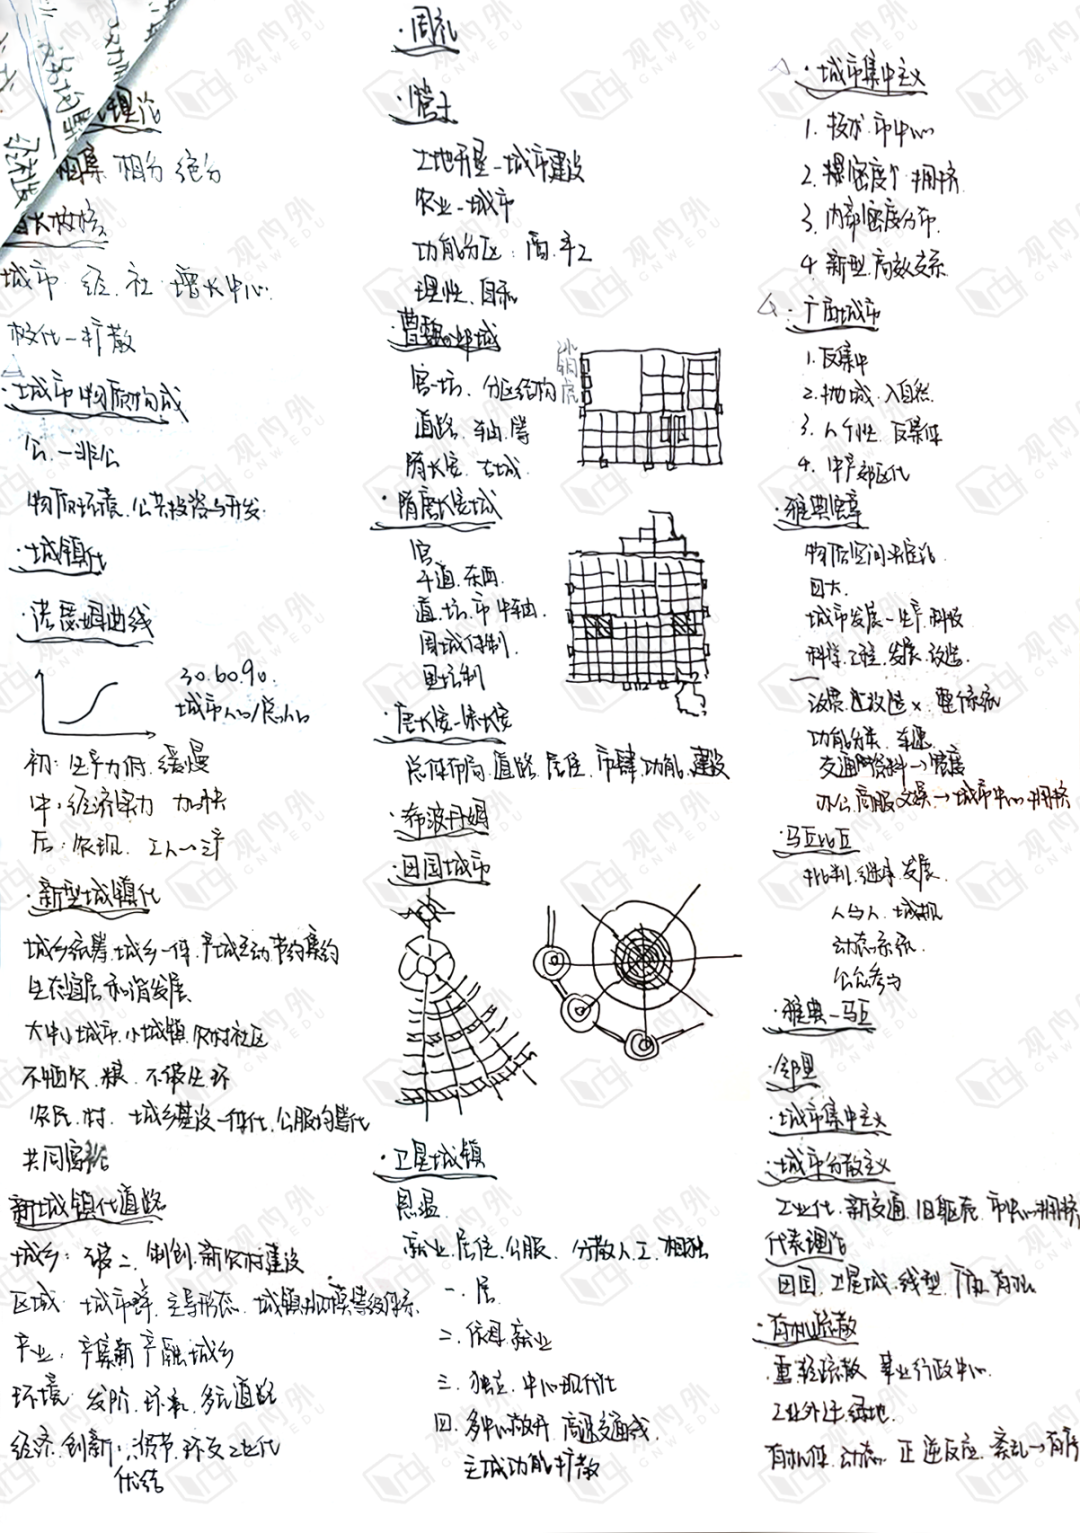 理论
相集 相分 绝分
增长极核
城市 经.社 增长中心.
极化—扩散
·城市物质构成
公—非公
物质环境.公共投资与开发.
·城镇化
·诺瑟姆曲线
30.60.90.
城市人口/总人口
初:生产力低.缓慢
中:经济实力 加快
后:农现. 工人→三产
·新型城镇化
城乡统筹.城乡一体.产城互动.节约集约
生态宜居 和谐发展.
大中小城市.小城镇.农村社区
不牺农.粮.不破生.环
农民.村. 城乡基设一体化.公服均等化
共同富裕
新城镇化道路
城乡:破二.制创.新农村建设
区域 城市群.主导形态.城镇规模等级体系.
产业: 产集新 产融城乡
环境 发阶.环承.多元道路
经济.创新: 资节.环友工业化
优结
·周礼
·管士
土地开垦—城市建设
农业—城市
功能分区: 商.手工
理性.自和
·曹魏邺城
宫—坊. 分区结构
冰铜虎
道路.轴.等
隋长安.古城.
·隋唐长安城
宫
干道.东西.
道.坊.市 中轴.
周城体制.
里坊制
·唐长安—宋长安
总体布局.道路.居住.市肆.功能.建设
·希波丹姆
·田园城市
·卫星城镇
恩温.
就业.居住.公服. 分散人.工.相独
一.居
二.依母.就业
三.独立.中心现代化
四.多中心敞开.高速交通线.
主城功能扩散
·城市集中主义
1.技术.市中心
2.提密度个拥挤.
3.内部密度分布.
4.新型.高效交系
·广亩城市
1.反集中
2.抛城.入自然.
3.人个性.反集体
4.中产郊区化
·雅典宪章
物质空间决定论.
四大.
城市发展—生产.科技
科学.工程.发展.改造.
改造×整体系统
功能分类.车速.
交通网资料→宽度
办公.商服.文娱.→城市中心拥挤
·马丘比丘
批判.继承.发展.
人与人.城规
动态系统.
公众参与
·雅典—马丘
·邻里
·城市集中主义
·城市分散主义
工业化.新交通.旧躯壳.市中心拥挤
代表理论
田园.卫星城.线型.广亩.有机
·有机疏散
重轻疏散 事业行政中心.
工业外迁 绿地.
有机体.动态. 正逆反应.紊乱→有序